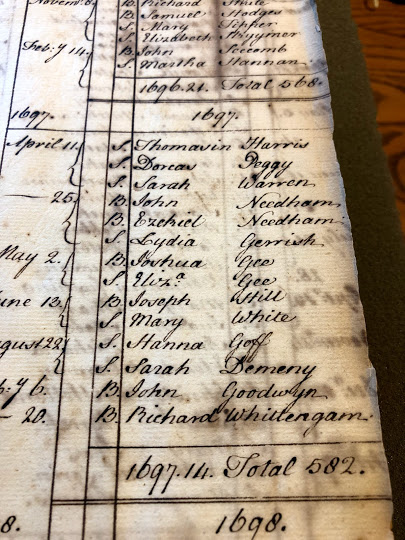 B. Richard
B. Samuel Hodges
S. Mary
S. Elizabeth Rhymer
Feb:y 14. B. John
S. Martha Hannan
1696. 21. Total 568.
1697. 1697.
April 11. S. Thomasin Harris
S. Dorcas Peggy
S. Sarah Warren
25. B. John Needham
B. Ezekiel Needham
S. Lydia Gerrish
May 2. B. Joshua Gee
S. Eliz.a Gee
June 13. B. Joseph Hill
S. Mary White
August 22. S. Hanna Goff
S. Sarah Demeny
6. B. John Goodwyn
— 20. B. Richard Whittengam
1697. 14. Total 582.
8. 1698.